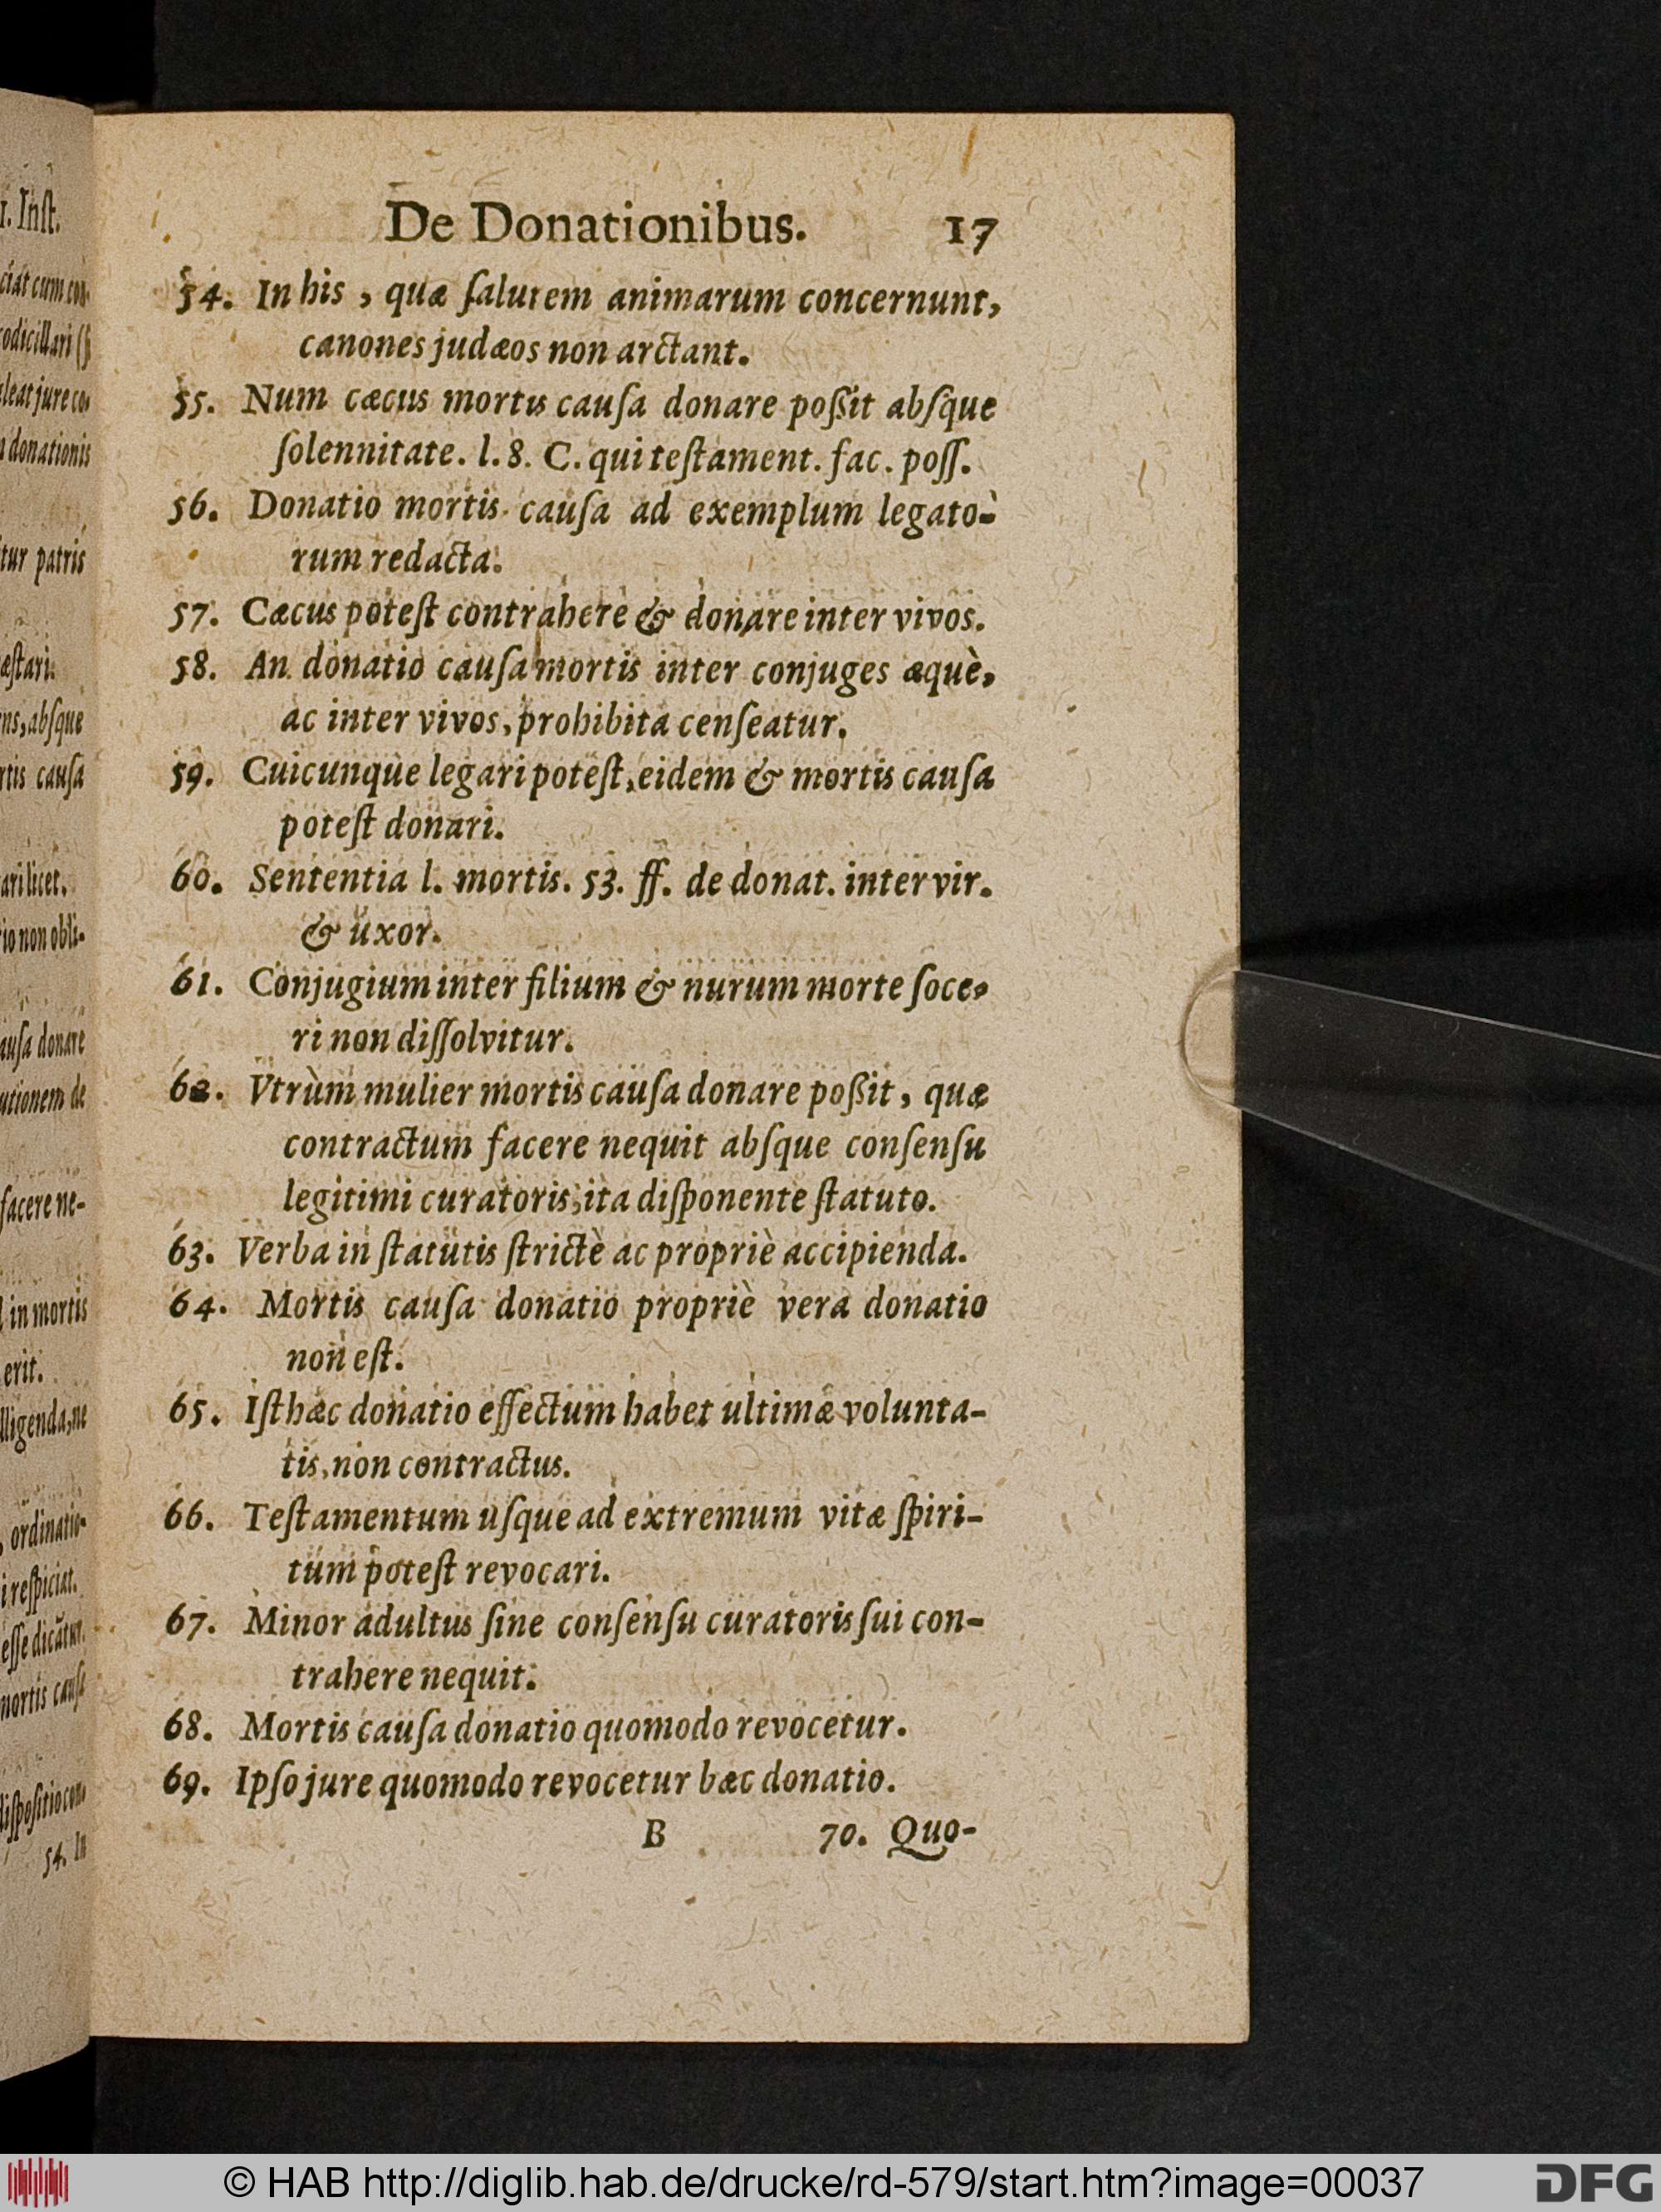 1. Inſt.
ciat cum con-
codicillari (ſ
aleat jure co-
donationis
tur patris
æſtari.
ens, abſque
rtis cauſa
ari licet.
io non obli-
auſa donare
utionem de
facere ne-
in mortis
erit.
lligenda, ne
, ordinatio-
i reſpiciat.
eſſe dicatur.
mortis cauſa
diſpoſitio con-
54. In
De Donationibus. 17
54. In his, quæ ſalutem animarum concernunt,
canones judæos non arctant.
55. Num cæcus mortis cauſa donare poßit abſque
ſolennitate. l. 8. C. qui teſtament. fac. poſſ.
56. Donatio mortis cauſa ad exemplum legato-
rum redacta.
57. Cæcus poteſt contrahere & donare inter vivos.
58. An donatio cauſa mortis inter conjuges æquè,
ac inter vivos, prohibita cenſeatur.
59. Cuicunque legari poteſt, eidem & mortis cauſa
poteſt donari.
60. Sententia l. mortis. 53. ff. de donat. inter vir.
& uxor.
61. Conjugium inter filium & nurum morte ſoce-
ri non diſſolvitur.
62. Vtrùm mulier mortis cauſa donare poßit, quæ
contractum facere nequit abſque conſenſu
legitimi curatoris, ita diſponente ſtatuto.
63. Verba in ſtatutis ſtrictè ac propriè accipienda.
64. Mortis cauſa donatio propriè vera donatio
non eſt.
65. Iſthæc donatio effectum habet ultimæ volunta-
tis, non contractus.
66. Teſtamentum uſque ad extremum vitæ ſpiri-
tum poteſt revocari.
67. Minor adultus ſine conſenſu curatoris ſui con-
trahere nequit.
68. Mortis cauſa donatio quomodo revocetur.
69. Ipſo jure quomodo revocetur hæc donatio.
B 70. Quo-
© HAB http://diglib.hab.de/drucke/rd-579/start.htm?image=00037
DFG